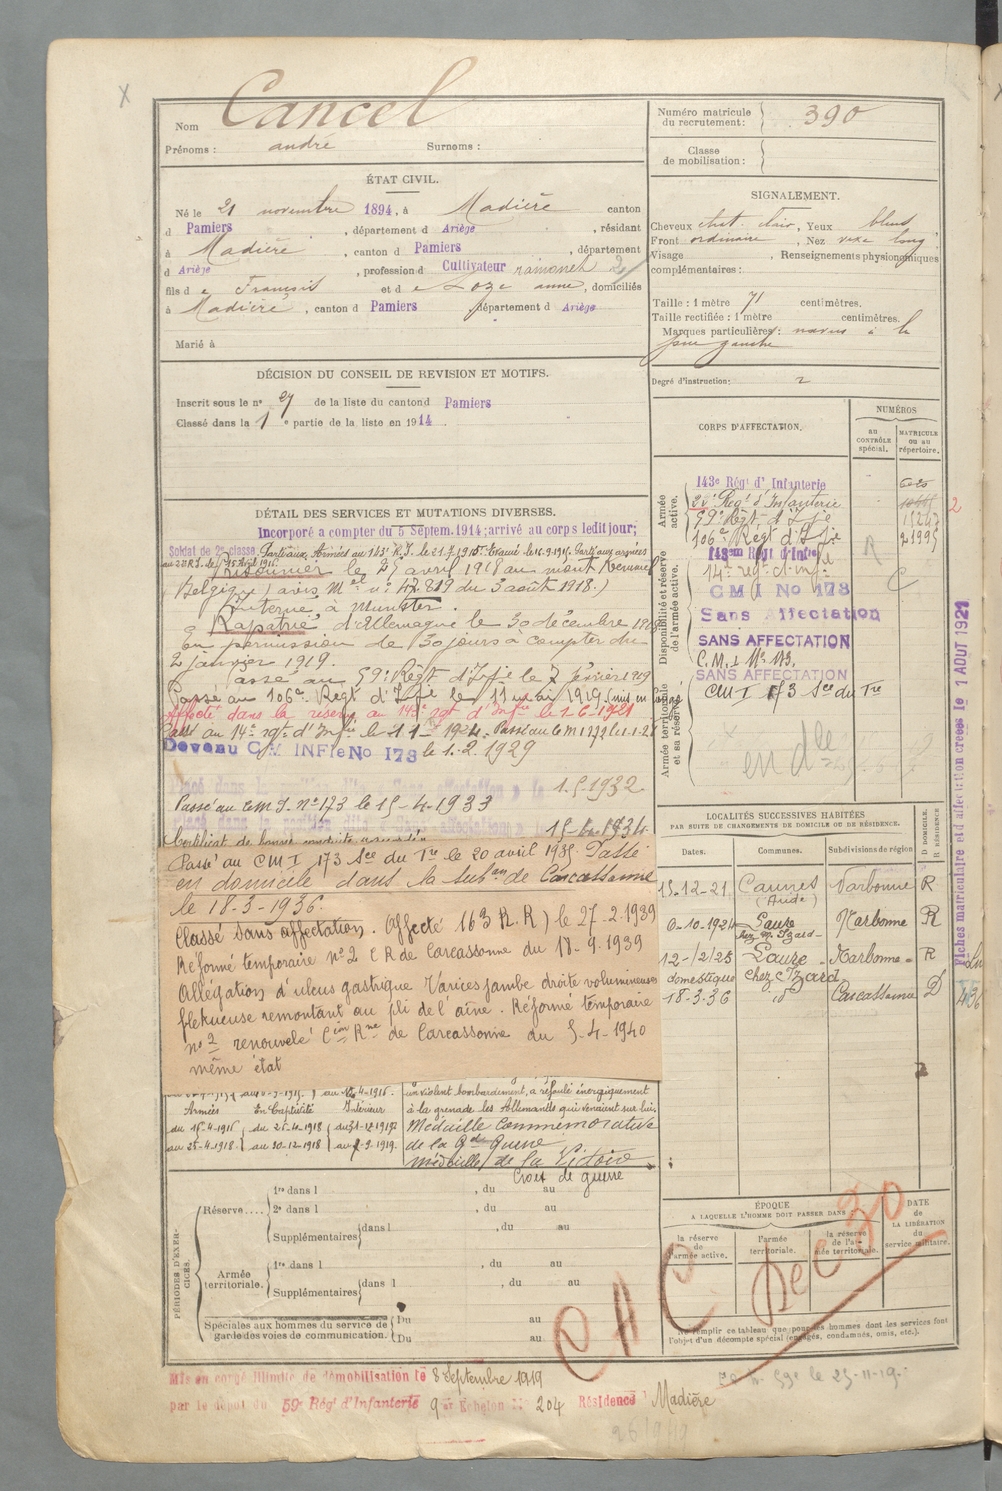 Nom Cancel
Prénoms : andré Surnoms :
Numéro matricule du recrutement : 390
Classe de mobilisation :
ÉTAT CIVIL.
Né le 21 novembre 1894, à Madière canton
d Pamiers, département d Ariège, résidant
à Madière, canton d Pamiers, département
d Ariège, profession d Cultivateur ramonet 2
fils de François et de Loze anne, domiciliés
à Madière, canton d Pamiers, département d Ariège
Marié à
SIGNALEMENT.
Cheveux chat. clair, Yeux bleus
Front ordinaire, Nez vexe long
Visage , Renseignements physionomiques
complémentaires :
Taille : 1 mètre 71 centimètres.
Taille rectifiée : 1 mètre centimètres.
Marques particulières : nævus à la
joue gauche
Degré d'instruction : 2
DÉCISION DU CONSEIL DE REVISION ET MOTIFS.
Inscrit sous le n° 27 de la liste du canton d Pamiers
Classé dans la 1e partie de la liste en 1914.
DÉTAIL DES SERVICES ET MUTATIONS DIVERSES.
Incorporé a compter du 5 Septem. 1914 ; arrivé au corps ledit jour ;
Soldat de 2e classe. Parti aux Armées au 143e R.I. le 21.7.1915. Evacué le 16.9.1915. Parti aux armées
au 22 R.I. le 15 Avril 1916.
Prisonnier le 25 avril 1918 au mont Kemmel
(Belgique) avis Mel n° 47.819 du 3 août 1918.)
Interné à Munster.
Rapatrié d'Allemagne le 30 décembre 1918
En permission de 30 jours à compter du
2 janvier 1919.
Passé au 59e Régt d'Ifie le 7 février 1919
Passé au 106e Régt d'Ifie le 11 mai 1919 (mis en congé)
Affecté dans la réserve au 14e rgt d'Infie le 1-6-1921
Passé au 14e rgt d'Infie le 1-1-1924. Passé au CMI 173 le 1-1-28
Devenu C.M. INFie No 173 le 1.2.1929
1.5.1932
Passé au CMI. N° 173 le 15-4-1933
15-6-1934
Certificat de bonne conduite accordé
Passé au CMI 173 Sce du Tre le 20 avril 1935. Passé
en domicile dans la subon de Carcassonne
le 18-3-1936.
Classé Sans affectation. Affecté 163 R.R) le 27-2-1939
Réformé temporaire n° 2 CR de Carcassonne du 18-9-1939
Allégation d'ulcus gastrique Varices jambe droite volumineuses
flexueuse remontant au pli de l'aîne. Réformé temporaire
n° 2 renouvelé Cion Rme de Carcassonne du 5-4-1940
même état
Armées En Captivité Intérieur
du 16-4-1916 du 26-4-1918 du 31-12-1918
au 25-4-1918. au 30-12-1918 au 7-9-1919.
un violent bombardement, a refoulé énergiquement
à la grenade les Allemands qui venaient sur lui.
Médaille commémorative
de la Gde Guerre
médaille de la Victoire
Croix de guerre
CORPS D'AFFECTATION.
NUMÉROS
au CONTRÔLE spécial.
MATRICULE ou au répertoire.
Armée active.
143e Régt d'Infanterie
22e Regt d'Infanterie
59e Régt d'Ifie 15247
106e Régt d'Ifie 21995
Disponibilité et réserve de l'armée active.
143em Régt d'Infie
14e regt d'infie
C M I No 173
Sans Affectation
SANS AFFECTATION
C.M.I N° 173.
SANS AFFECTATION
Armée territoriale et sa réserve
CMI 173 Sce du Tre
en dle
LOCALITÉS SUCCESSIVES HABITÉES
PAR SUITE DE CHANGEMENTS DE DOMICILE OU DE RÉSIDENCE.
Dates. Communes. Subdivisions de région D DOMICILE. R RÉSIDENCE
15-12-21 Caunes (Aude) Narbonne R
6-10-1924 Laure Narbonne R
12-12/28 Laure Narbonne R
domestique chez Izard
18-3-36 id Carcassonne D
Fiches matriculaire et d'affectation créées le 1 AOUT 1921
PÉRIODES D'EXERCICES.
Réserve....
1re dans l , du au
2e dans l , du au
Supplémentaires dans l , du au
Armée territoriale.
1re dans l , du au
Supplémentaires dans l , du au
Spéciales aux hommes du service de garde des voies de communication.
Du au
Du au
ÉPOQUE
A LAQUELLE L'HOMME DOIT PASSER DANS :
la réserve de l'armée active.
l'armée territoriale.
la réserve de l'armée territoriale.
DATE de LA LIBÉRATION du service militaire.
CAC Dec 30
Ne remplir ce tableau que pour les hommes dont les services font
l'objet d'un décompte spécial (engagés, condamnés, omis, etc.).
Mis en congé illimité de démobilisation le 8 Septembre 1919
par le dépôt du 59e Rég' d'Infanterie 9e Echelon N° 204 Résidence Madière
26/9/19